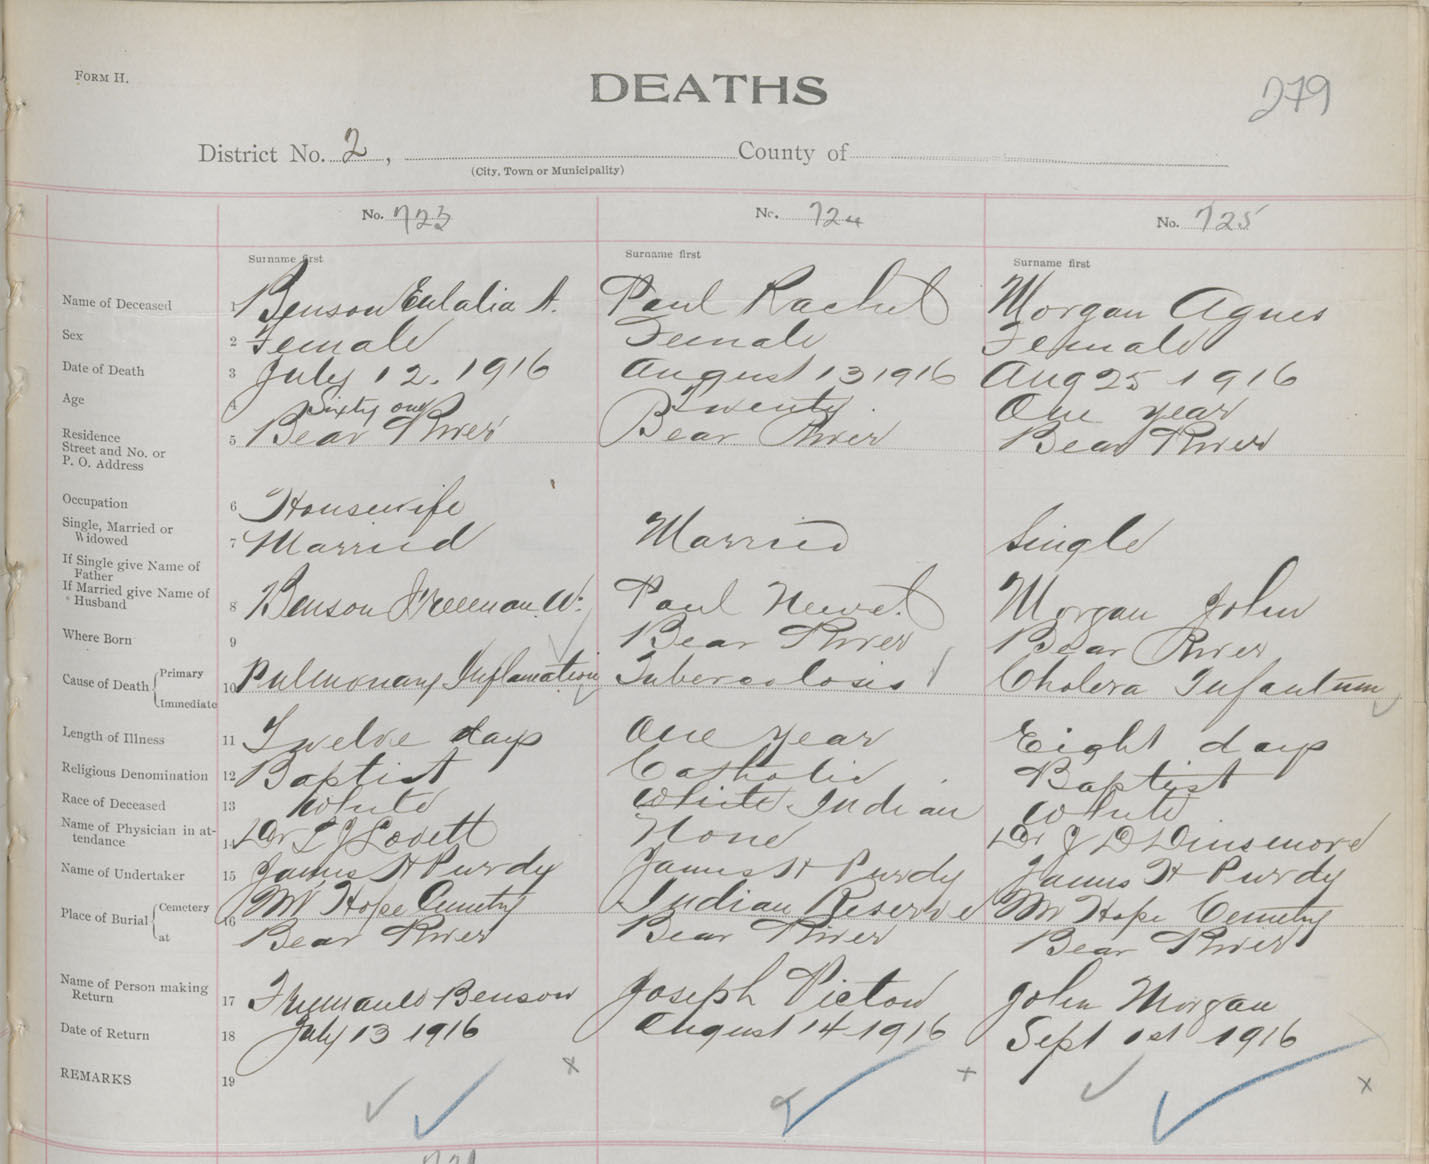 FORM H.
DEATHS
279
District No. 2, County of
(City, Town or Municipality)
No. 723 No. 724 No. 725
Surname first Surname first Surname first
Name of Deceased 1 Benson Eulalia A. Paul Rachel Morgan Agnes
Sex 2 Female Female Female
Date of Death 3 July 12. 1916 August 13 1916 Aug 25 1916
Age 4 Sixty one Twenty One year
Residence
Street and No. or
P. O. Address 5 Bear River Bear River Bear River
Occupation 6 Housewife
Single, Married or
Widowed 7 Married Married Single
If Single give Name of
Father
If Married give Name of
Husband 8 Benson Freeman W. Paul Newel Morgan John
Where Born 9 Bear River Bear River
Cause of Death { Primary
Immediate 10 Pulmonary Inflamation Tubercolosis Cholera Infantum
Length of Illness 11 Twelve days One year Eight days
Religious Denomination 12 Baptist Catholic Baptist
Race of Deceased 13 White White Indian White
Name of Physician in at-
tendance 14 Dr L J Lovett None Dr J D Dinsmore
Name of Undertaker 15 James H Purdy James H Purdy James H Purdy
Place of Burial { Cemetery
at 16 Mt Hope Cemetry Indian Reserve Mt Hope Cemetry
Bear River Bear River Bear River
Name of Person making
Return 17 Benson Joseph Pictou John Morgan
Date of Return 18 July 13 1916 August 14 1916 Sept 1st 1916
REMARKS 19